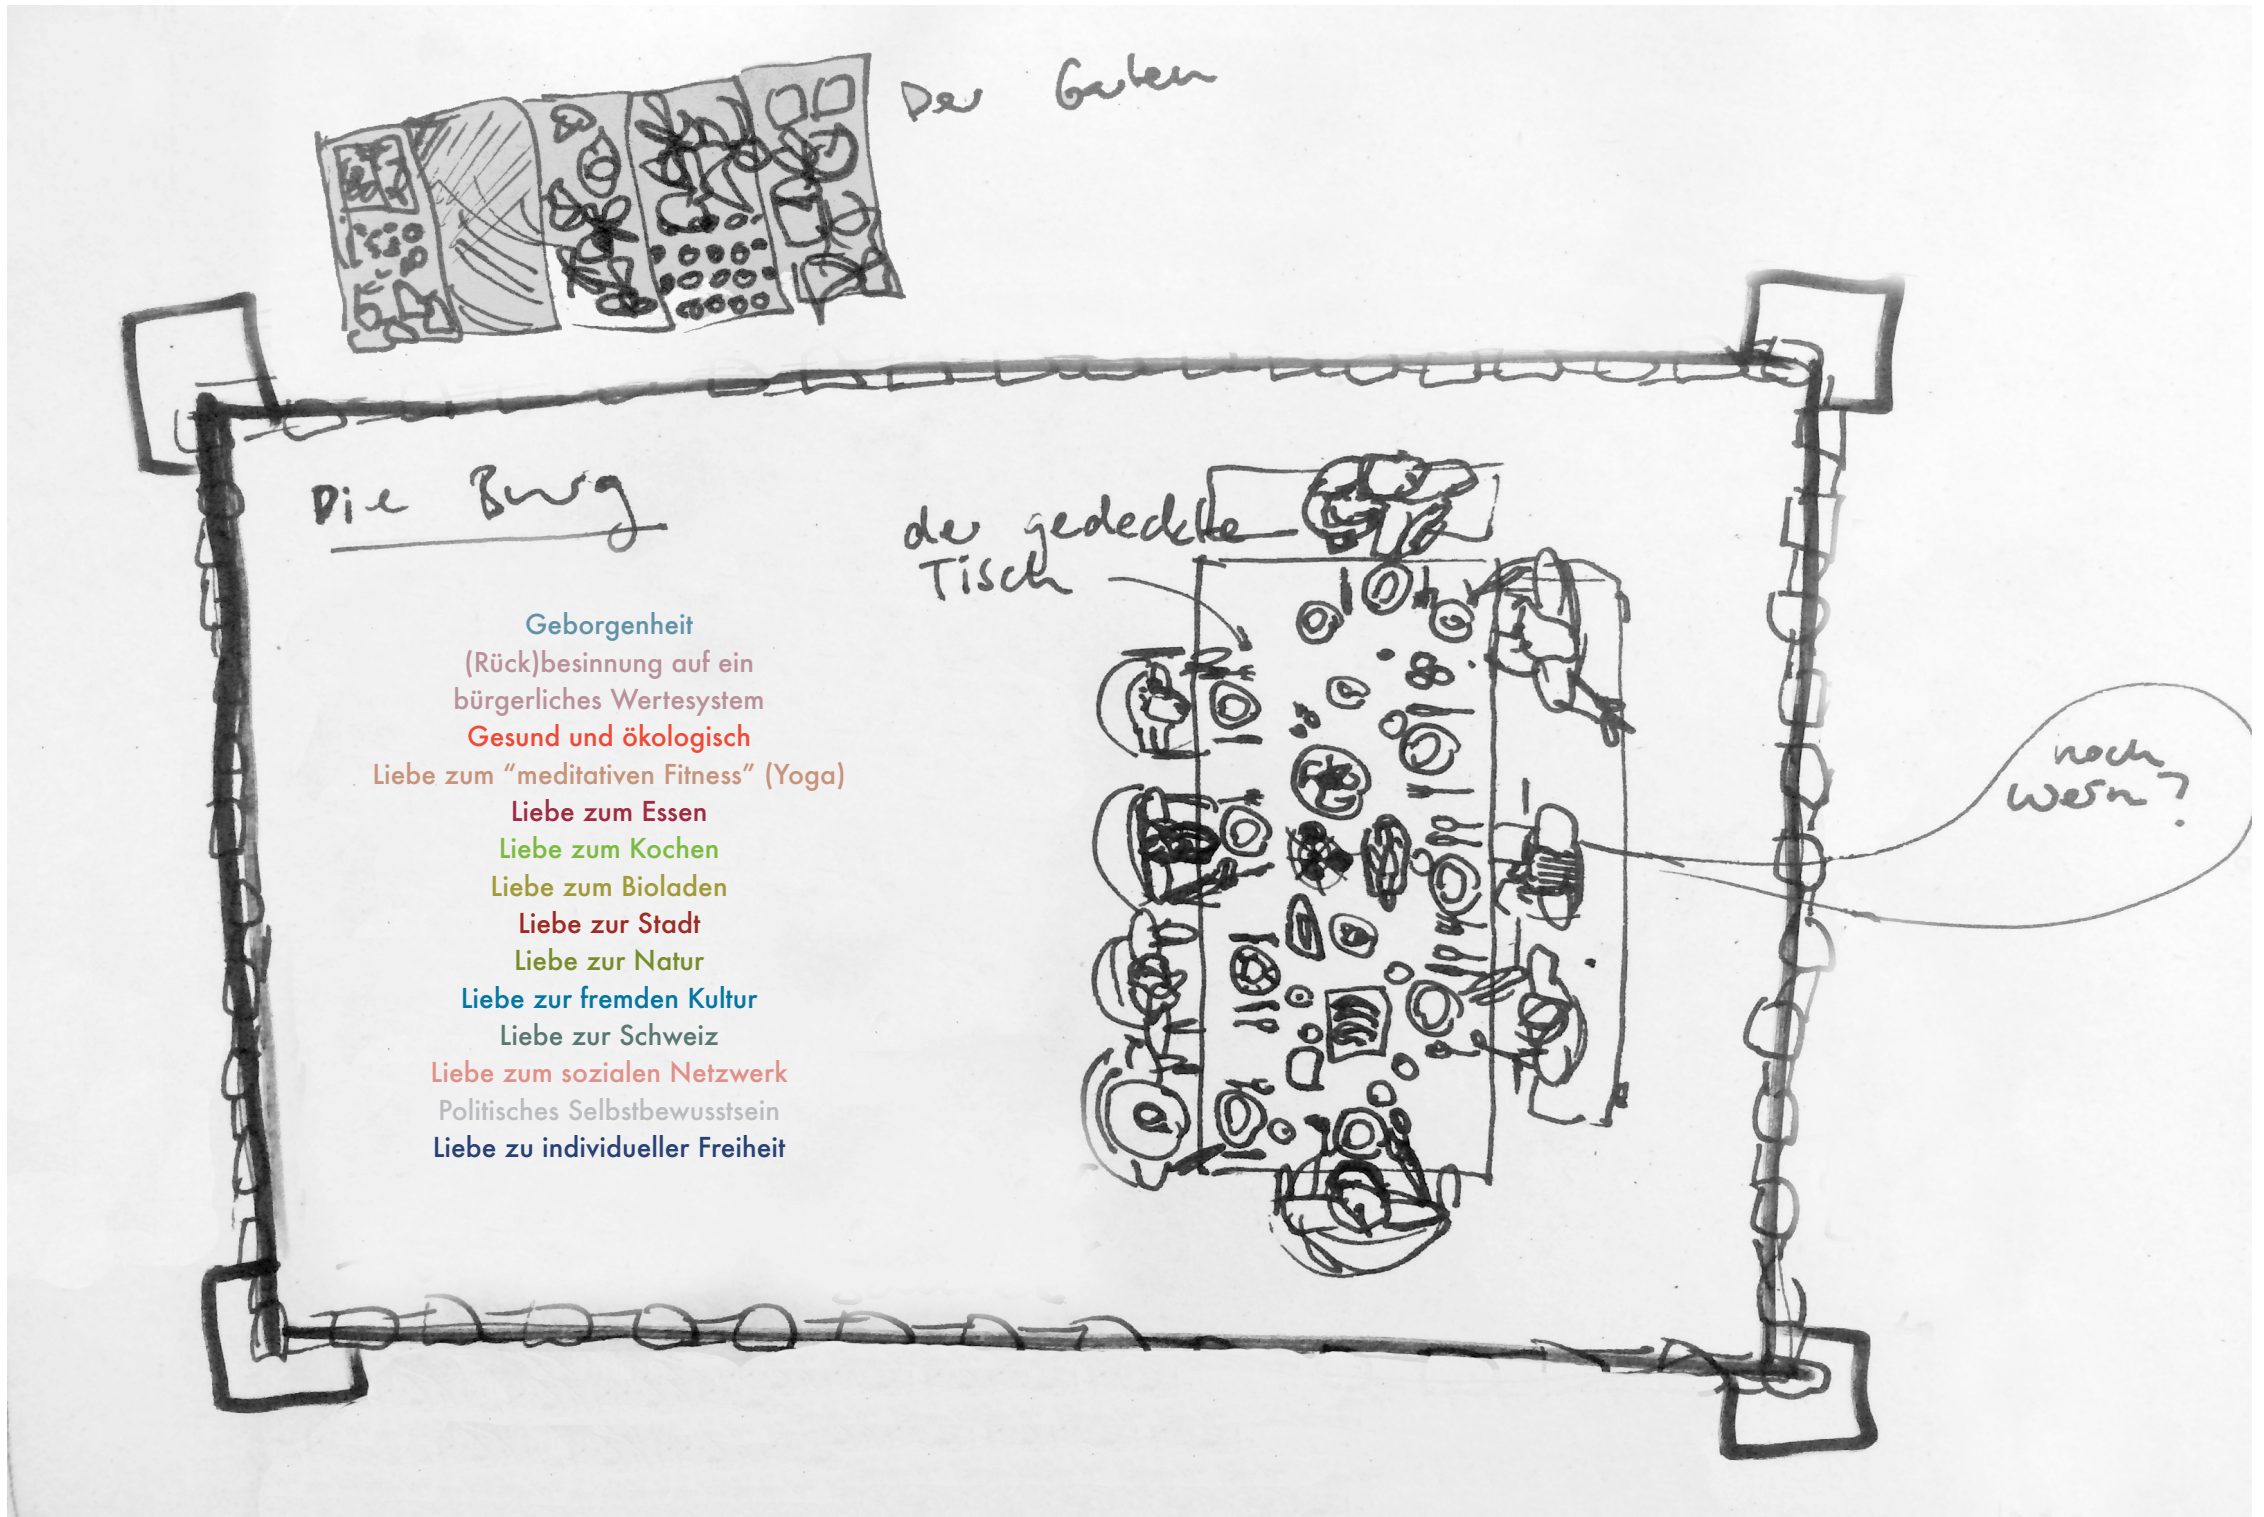 Der Garten
Die Burg
der gedeckte
Tisch
Geborgenheit
(Rück)besinnung auf ein
bürgerliches Wertesystem
Gesund und ökologisch
Liebe zum “meditativen Fitness” (Yoga)
Liebe zum Essen
Liebe zum Kochen
Liebe zum Bioladen
Liebe zur Stadt
Liebe zur Natur
Liebe zur fremden Kultur
Liebe zur Schweiz
Liebe zum sozialen Netzwerk
Politisches Selbstbewusstsein
Liebe zu individueller Freiheit
noch
Wein?